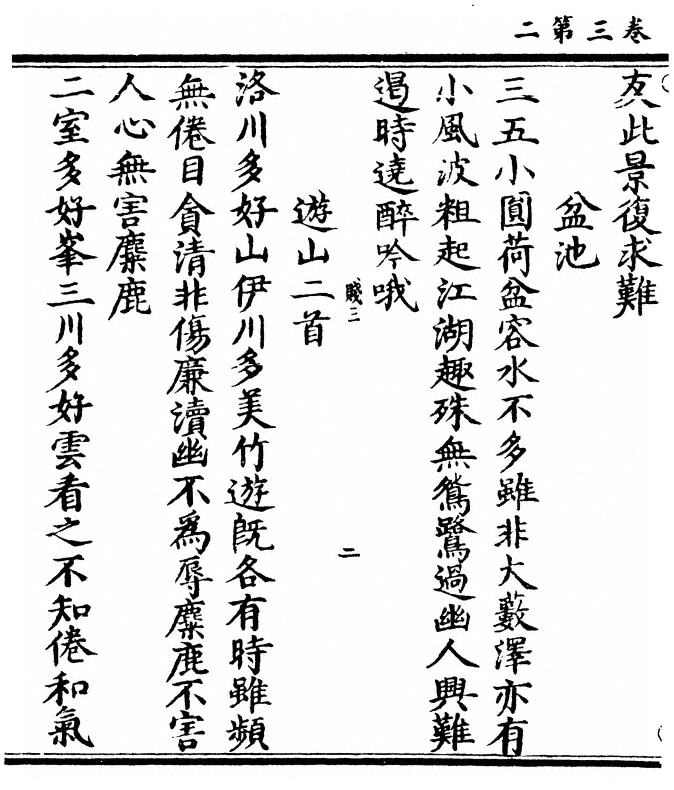 卷三第二
友此景復求難
盆池
三五小圓荷盆容水不多雖非大藪澤亦有
小風波粗起江湖趣殊無鴛鷺過幽人興難
遏時遶醉吟哦
賤三
二
遊山二首
洛川多好山伊川多美竹遊既各有時雖頻
無倦目貪清非傷廉瀆幽不爲辱麋鹿不害
人心無害麋鹿
二室多好峯三川多好雲看之不知倦和氣